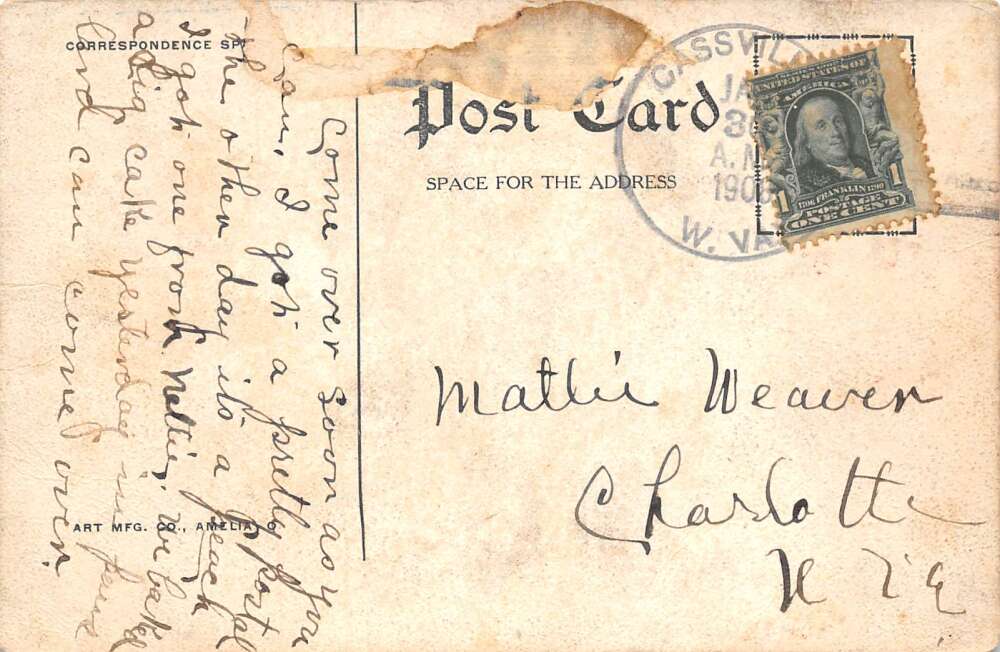 CORRESPONDENCE SP
Come over soon as you
can, I got a pretty Postal
the other day it's a peach
I got one from Nellie, we baked
a big cake yesterday
Lord can come over.
ART MFG. CO., AMELIA, O.
Post Card
SPACE FOR THE ADDRESS
CASSVILL
JA
30
A.M
190
W. VA
UNITED STATES OF
AMERICA
1 1
1706 FRANKLIN 1790
POSTAGE
ONE CENT
Mattie Weaver
Charlotte
N